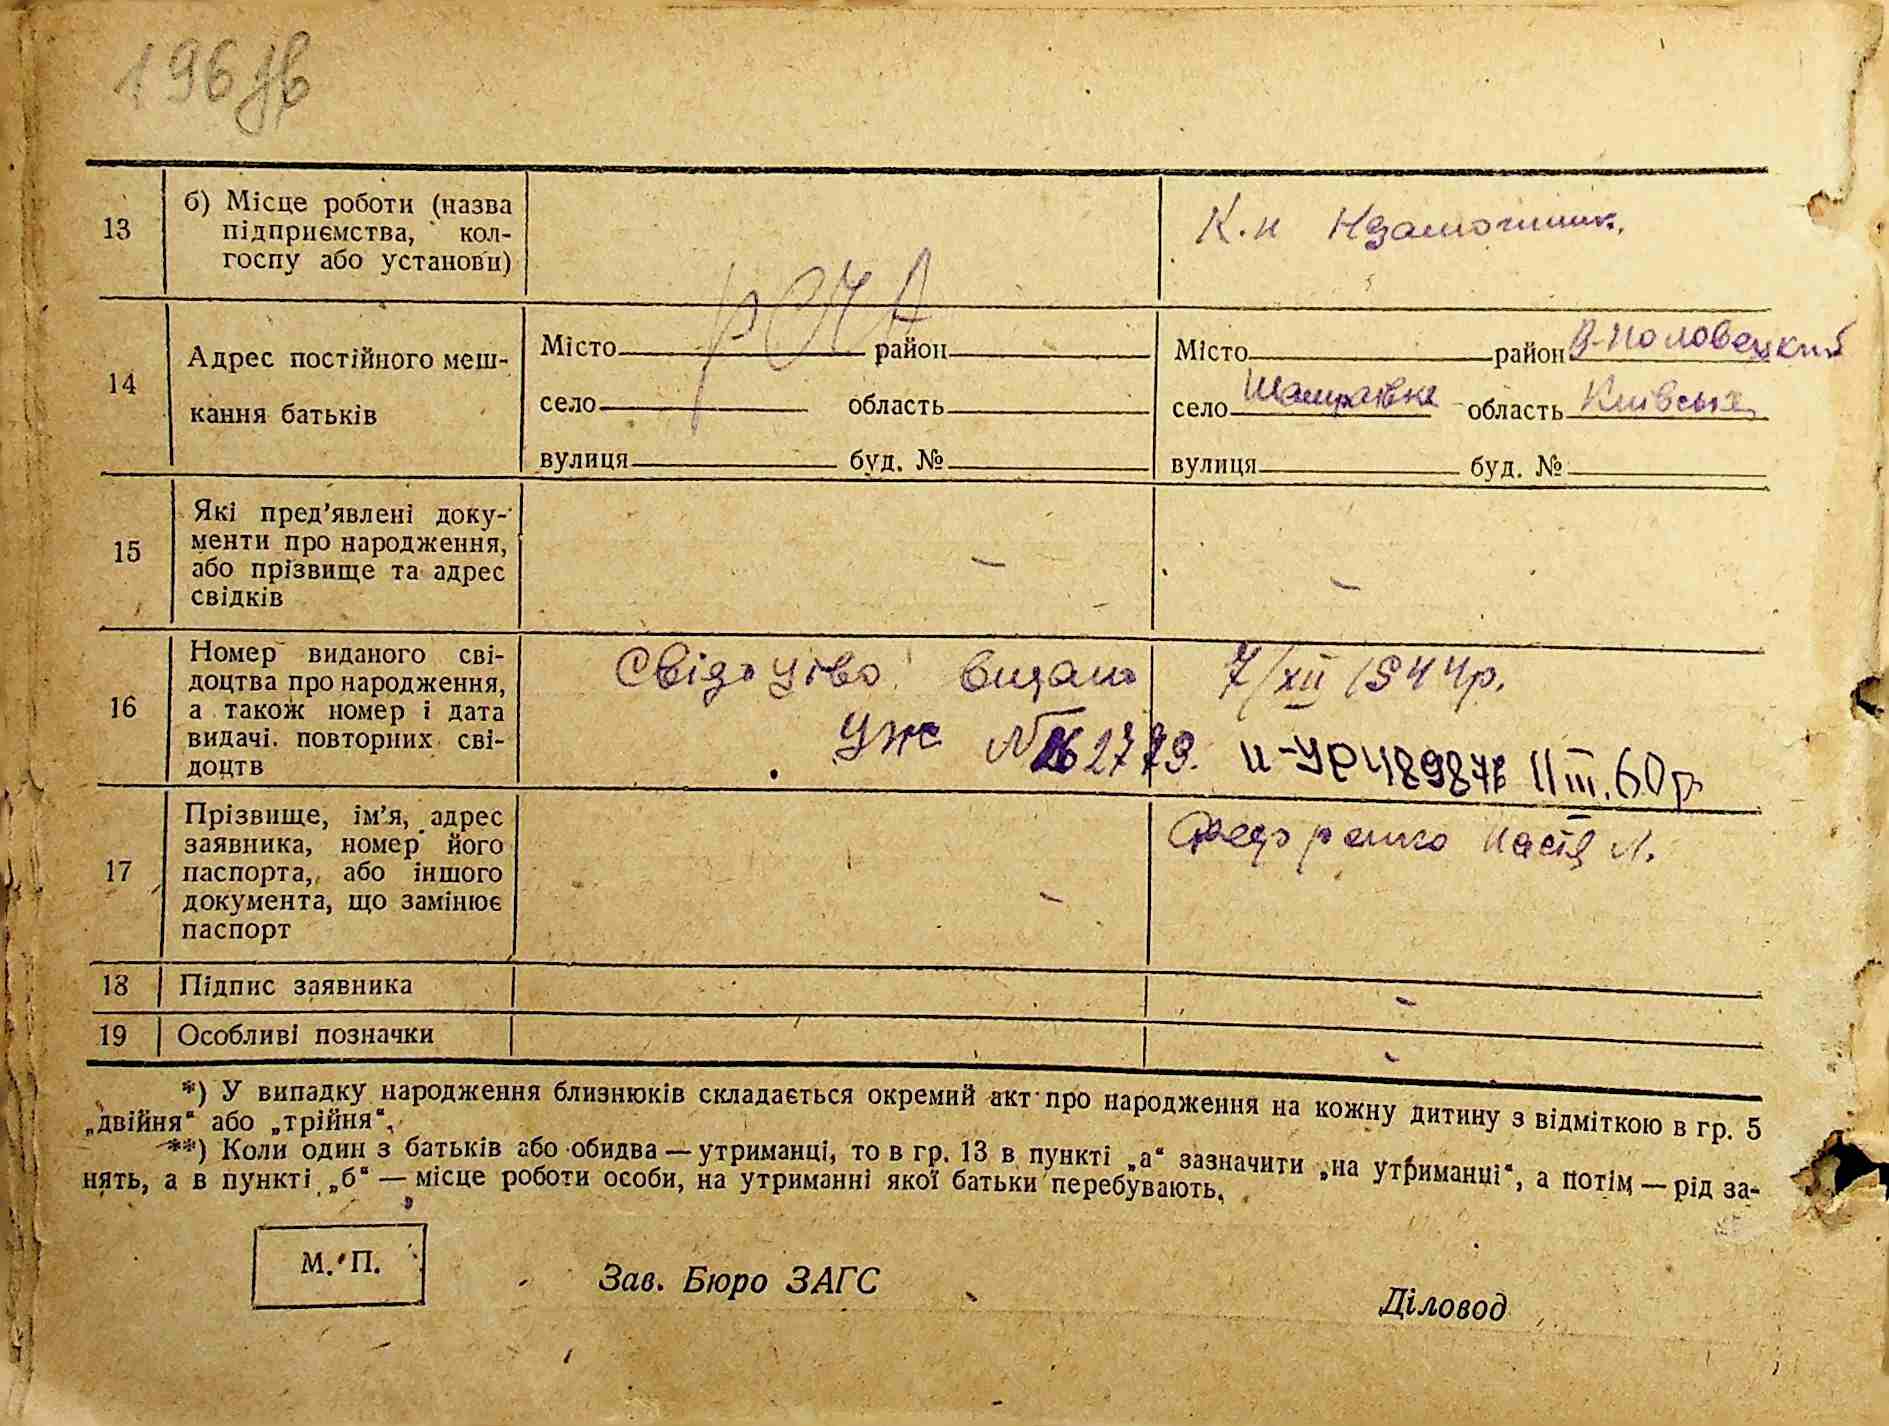 196 зв
13
б) Місце роботи (назва
підприємства, кол-
госпу або установи)
К.н Нзаможник.
РСЧА
14
Адрес постійного меш-
кання батьків
Місто район
село область
вулиця буд. №
Місто район В-Половецкий
село Шамраївка область Київська
вулиця буд. №
15
Які пред'явлені доку-
менти про народження,
або прізвище та адрес
свідків
–
–
16
Номер виданого сві-
доцтва про народження,
а також номер і дата
видачі повторних сві-
доцтв
Свідоцтво видано 7/XII 1944р.
УЖ № 2779. II-УР 489876 11 III.60р
17
Прізвище, ім'я, адрес
заявника, номер його
паспорта, або іншого
документа, що замінює
паспорт
–
Федоренко Настя Л.
18 Підпис заявника
–
19 Особливі позначки
–
*) У випадку народження близнюків складається окремий акт про народження на кожну дитину з відміткою в гр. 5
„двійня“ або „трійня“.
**) Коли один з батьків або обидва — утриманці, то в гр. 13 в пункті „а“ зазначити „на утриманці“, а потім — рід за-
нять, а в пункті „б“ — місце роботи особи, на утриманні якої батьки перебувають.
М. П.
Зав. Бюро ЗАГС
Діловод